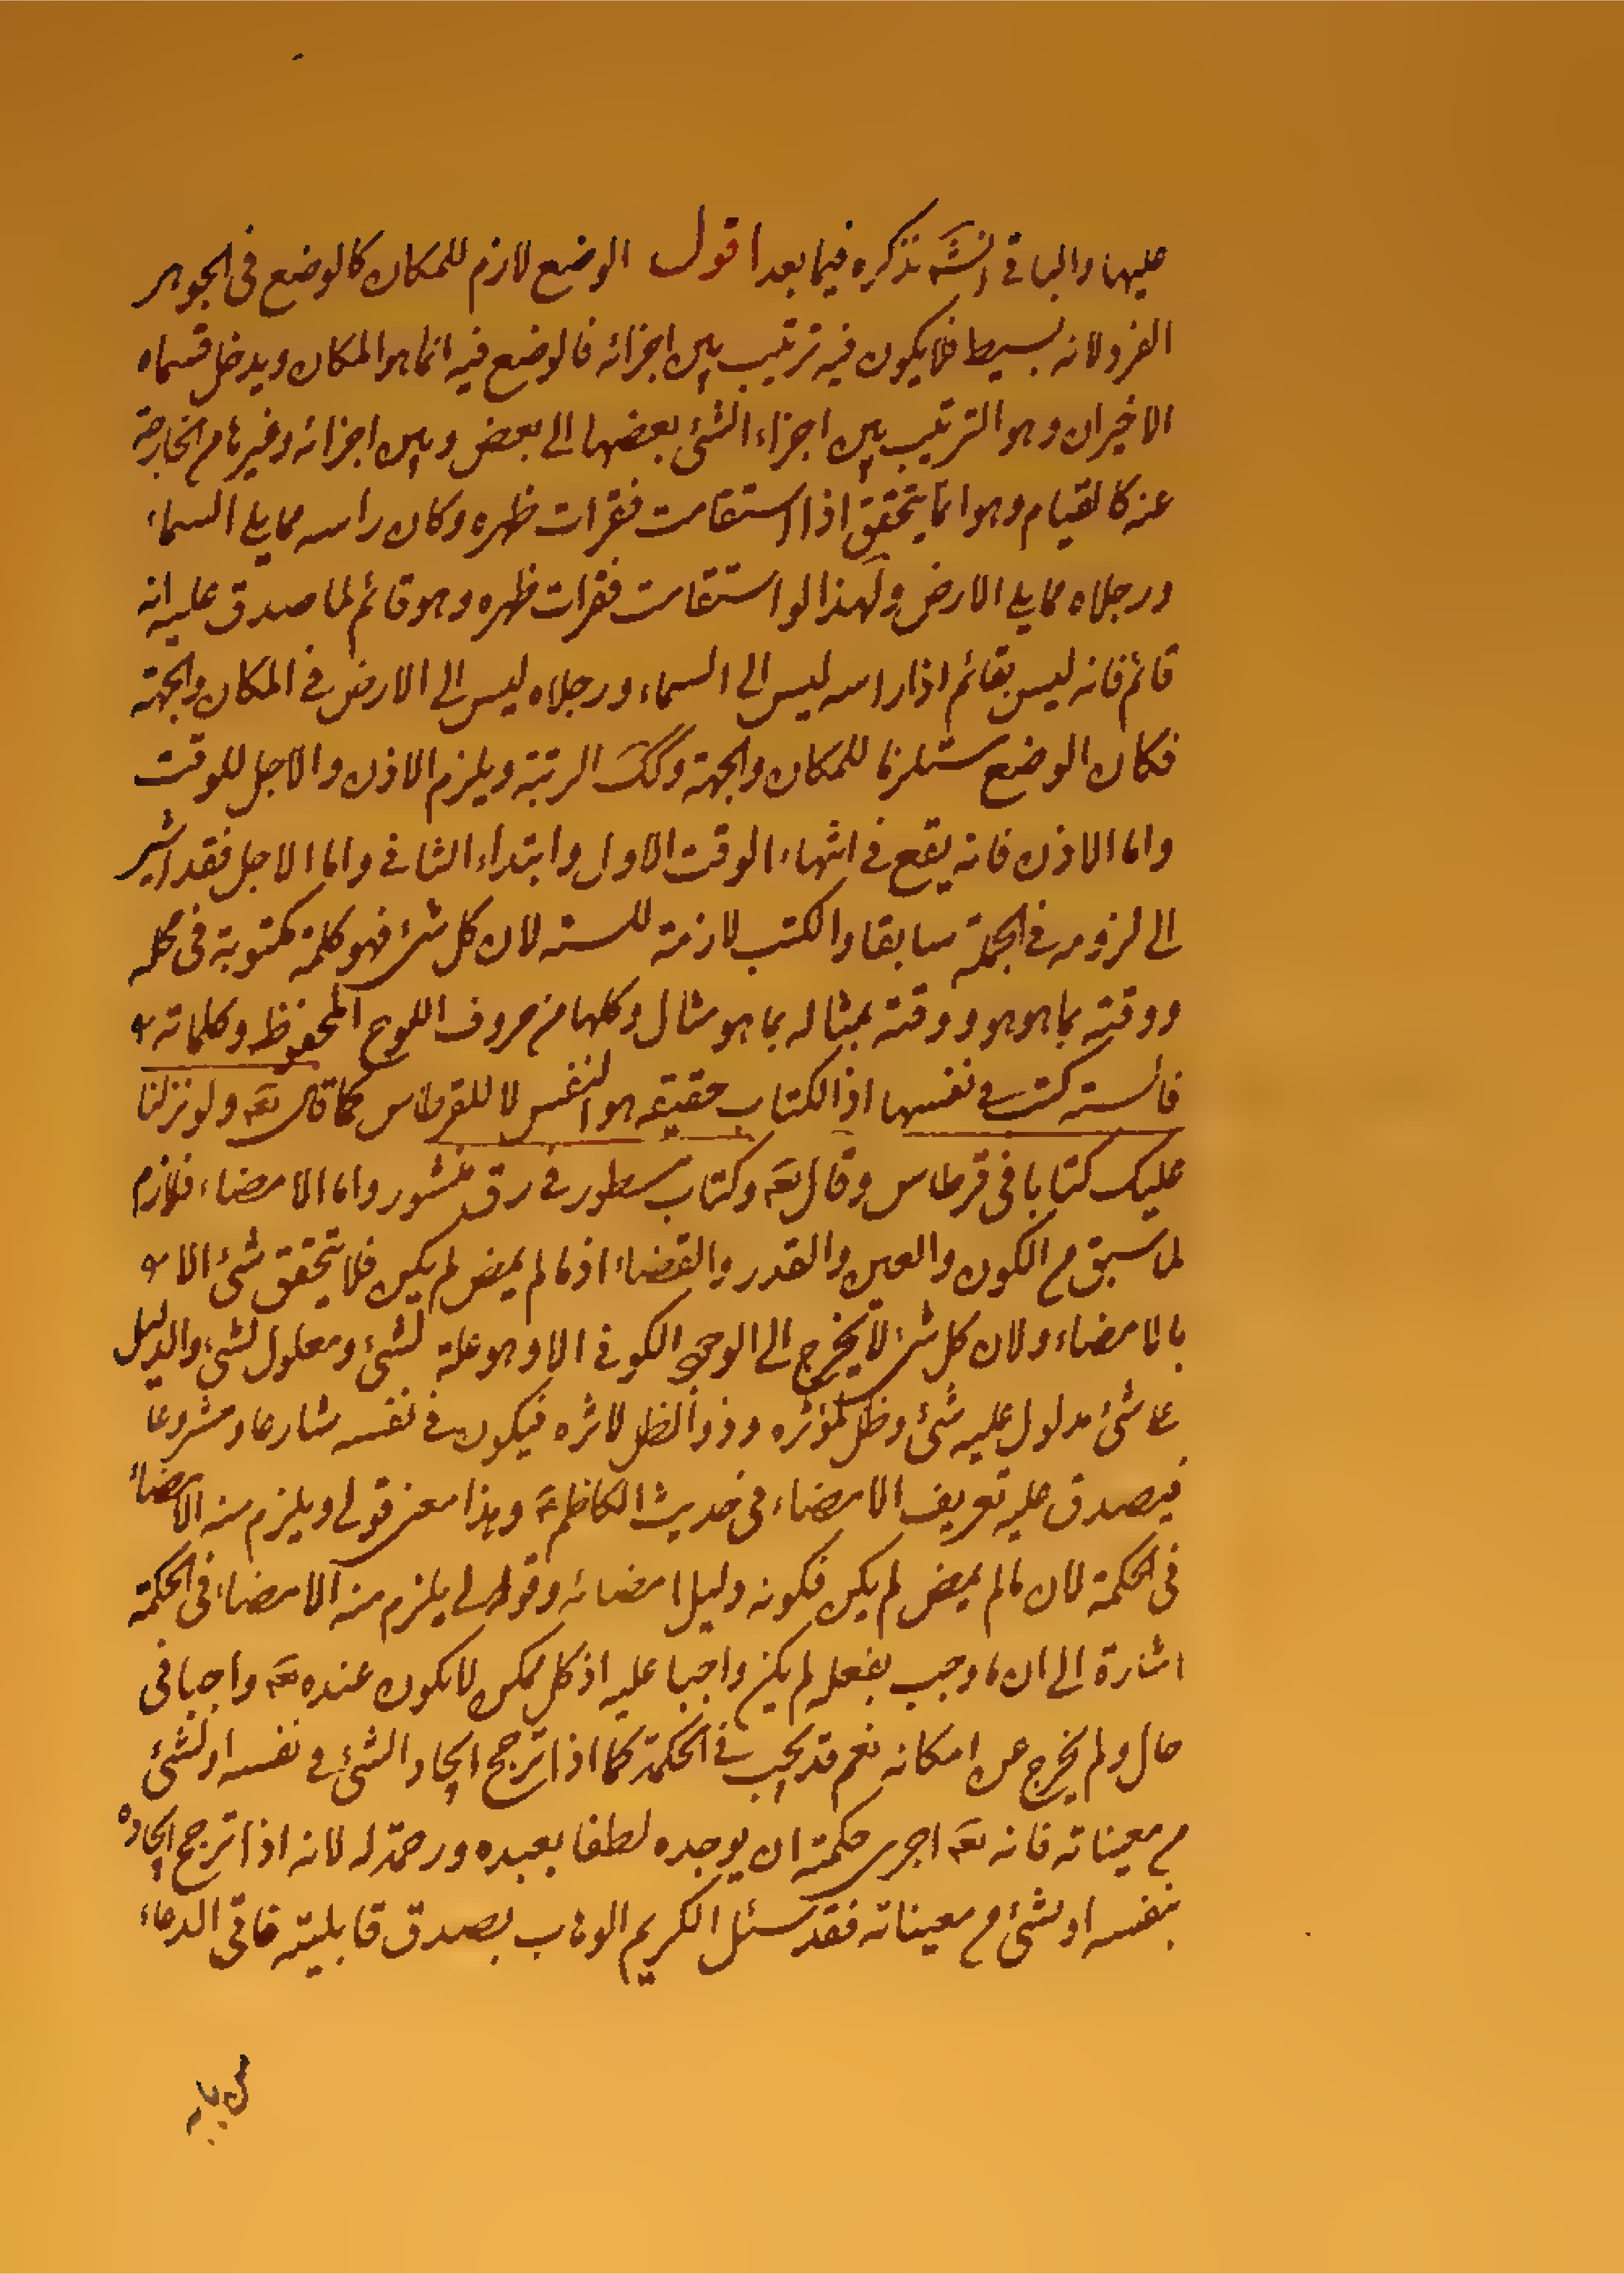 عليها والباقى انشـٓه نذكره فيما بعد اقول الوضع لازم للمكان كالوضع فى الجوهر
الفرد لانه بسيط فلا يكون فيه ترتيب بين اجزائه فالوضع فيه انما هو المكان ويدخل قسماه
الاخيران وهو الترتيب بين اجزاء الشئ بعضها الى بعض وبين اجزائه وغيرها من الخارجة
عنه كالقيام وهو انما يتحقق اذا استقامت فقرات ظهره وكان راسه مما يلى السماء
ورجلاه مما يلى الارض ولهذا لو استقامت فقرات ظهره وهو قائم لما صدق عليه انه
قائم فانه ليس بقائم اذا راسه ليس الى السماء ورجلاه ليس الى الارض فى المكان والجهة
فكان الوضع مستلزما للمكان والجهة وكك الرتبة ويلزم الاذن والاجل للوقت
واما الاذن فانه يقع فى انتهاء الوقت الاول وابتداء الثانى واما الاجل فقد اشير
الى لزومه فى الجملة سابقا والكتب لازمة للستة لان كل شئ فهو كلمة مكتوبة فى محله
ووقته بما هو هو ووقته بمثاله بما هو مثال وكلها من حروف اللوح المحفوظ وكلماته
فالستة كتب فى نفسها اذ الكتاب حقيقة هو النفس لا للقرطاس كما قال تعٓه ولو نزلنا
عليك كتابا فى قرطاس وقال تعٓه وكتاب مسطور فى رق منشور واما الامضاء فلازم
لما سبق من الكون والعين والقدر والقضاء اذ ما لم يمض لم يكن فلا يتحقق شئ الا
بالامضاء ولان كل شئ لا يخرج الى الوجود الكونى الا وهو علة لشئ ومعلول لشئ والدليل
على شئ مدلول عليه شئ وظل لمؤثره وذو الظل لاثره فيكون فى نفسه شارعا ومشروعا
فيصدق عليه تعريف الامضاء فى حديث الكاظم ع وهذا معنى قولى ويلزم منه الامضاء
فى الحكمة لان ما لم يمض لم يكن فكونه دليل امضائه وقولى يلزم منه الامضاء فى الحكمة
اشارة الى ان ما وجب بفعله لم يكن واجبا عليه اذ كل ممكن لا يكون عنده تعٓه واجبا فى
حال ولم يخرج عن امكانه نعم قد يجب فى الحكمة كما اذا ترجح ايجاد الشئ فى نفسه او لشئ
من معيناته فانه تعٓه اجرى حكمته ان يوجده لطفا بعبده ورحمة له لانه اذا ترجح ايجاده
بنفسه او لشئ من معيناته فقد سئل الكريم الوهاب بصدق قابليته فاتى الدعاء